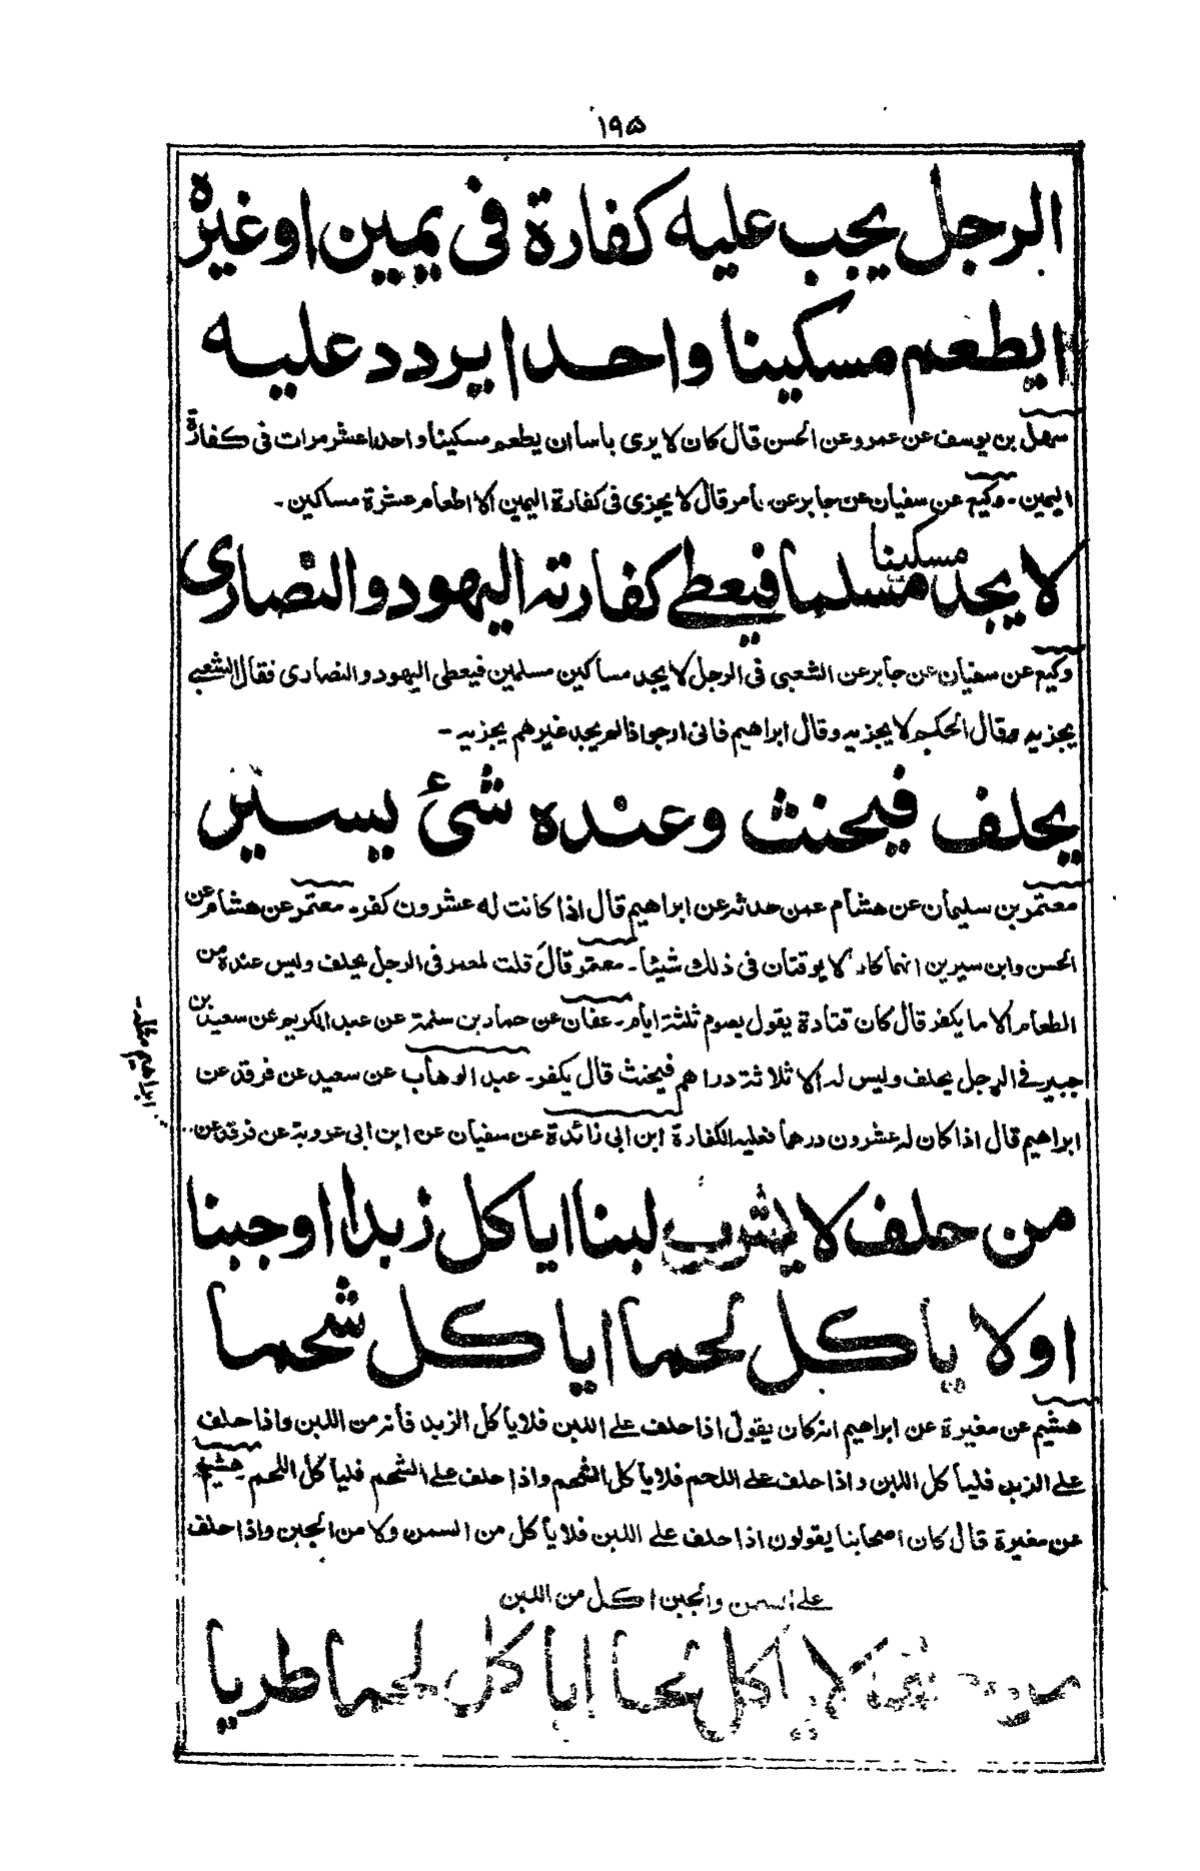 ۱۹۵
الرجل يجب عليه كفارة فى يمين او غيره
ايطعم مسكينا واحدا يردد عليه
سهل بن يوسف عن عمرو عن الحسن قال كان لا يرى باسا ان يطعم مسكينا واحدا عشر مرات فى كفارة
اليمين ـ وكيع عن سفيان عن جابر عن عامر قال لا يجزى فى كفارة اليمين الا اطعام عشرة مساكين ـ
مسكينا
لا يجد مسلما فيعطى كفارته اليهود والنصارى
وكيع عن سفيان عن جابر عن الشعبى فى الرجل لا يجد مساكين مسلمين فيعطى اليهود والنصارى فقال الشعبى
يجزيه وقال الحكم لا يجزيه وقال ابراهيم فانى ارجو اذا لم يجد غيرهم يجزيه ـ
يحلف فيحنث وعنده شئ يسير
معتمر بن سليمان عن هشام عمن حدثه عن ابراهيم قال اذا كانت له عشرون كفر ـ معتمر عن هشام عن
الحسن وابن سيرين انهما كانا لا يوقتان فى ذلك شيئا ـ معتمر قال قلت لمعمر فى الرجل يحلف وليس عنده من
الطعام الا ما يكفر قال كان قتادة يقول يصوم ثلثة ايام ـ عفان عن حماد بن سلمة عن عبد الكريم عن سعيد بن
جبير فى الرجل يحلف وليس له الا ثلاثة دراهم فيحنث قال يكفر ـ عبد الوهاب عن سعيد عن فرقد عن
ابراهيم قال اذا كان له عشرون درهما فعليه الكفارة ابن ابى زائدة عن سفيان عن ابن ابى عروبة عن فرقد عن
ابراهيم مثله ـ
من حلف لا يشرب لبنا ايا كل زبدا او جبنا
او لا يا كل لحما ايا كل شحما
هشيم عن مغيرة عن ابراهيم انه كان يقول اذا حلف على اللبن فلا يأ كل الزبد فأنه من اللبن واذا حلف
على الزبد فليأ كل اللبن واذا حلف على اللحم فلا يأ كل الشحم واذا حلف على الشحم فليأ كل اللحم ـ هشيم
عن مغيرة قال كان اصحابنا يقولون اذا حلف على اللبن فلا يأ كل من السمن ولا من الجبن واذا حلف
على السمن والجبن اكل من اللبن
لا ياكل لحما ايا كل لحما طريا